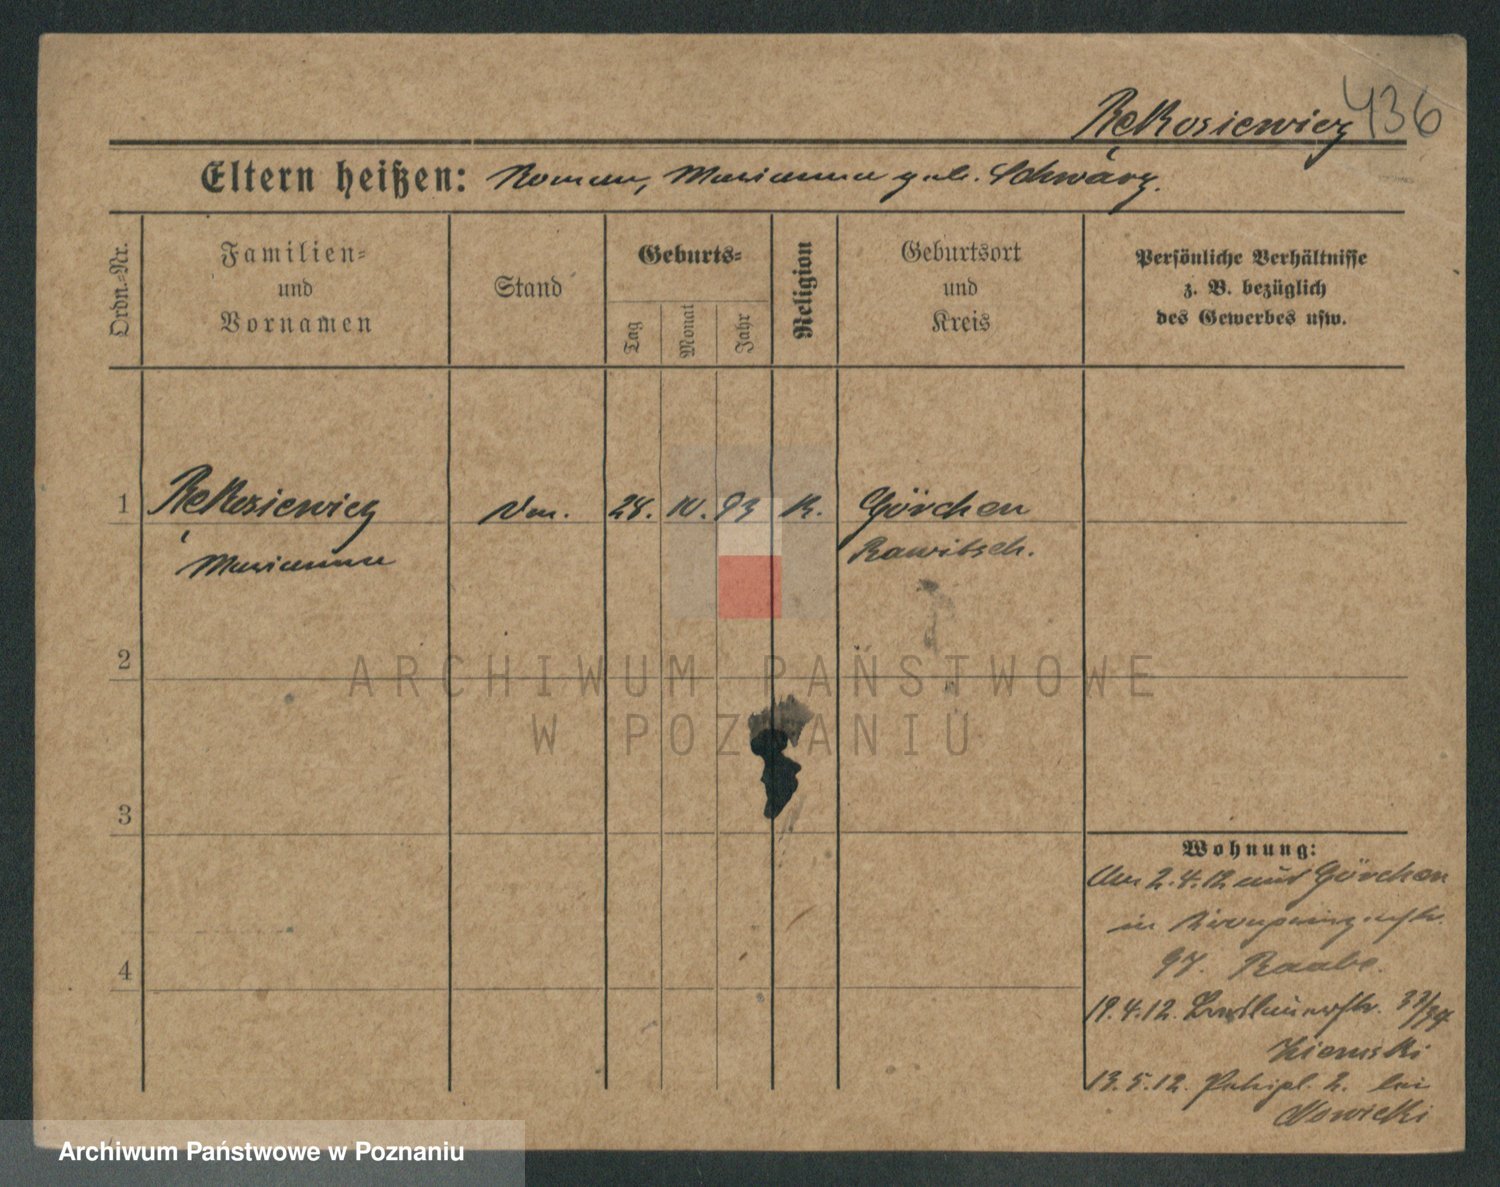 Rękosiewicz 436
Eltern heißen: Roman, Marianna geb. Schwarz.
Ordn.-Nr.
Familien-
und
Vornamen
Stand
Geburts-
Tag
Monat
Jahr
Religion
Geburtsort
und
Kreis
Persönliche Verhältnisse
z. B. bezüglich
des Gewerbes usw.
1 Rękosiewicz 28. IV. 93 K. Görchen
Marianna Rawitsch.
2
3
4
Wohnung:
2.4.12 aus Görchen
in Kronprinzenstr.
97. Raabe.
19.4.12. 33/34
Ziemski
13.5.12. Petripl. 2. bei
Nowicki
ARCHIWUM PAŃSTWOWE
W POZNANIU
Archiwum Państwowe w Poznaniu